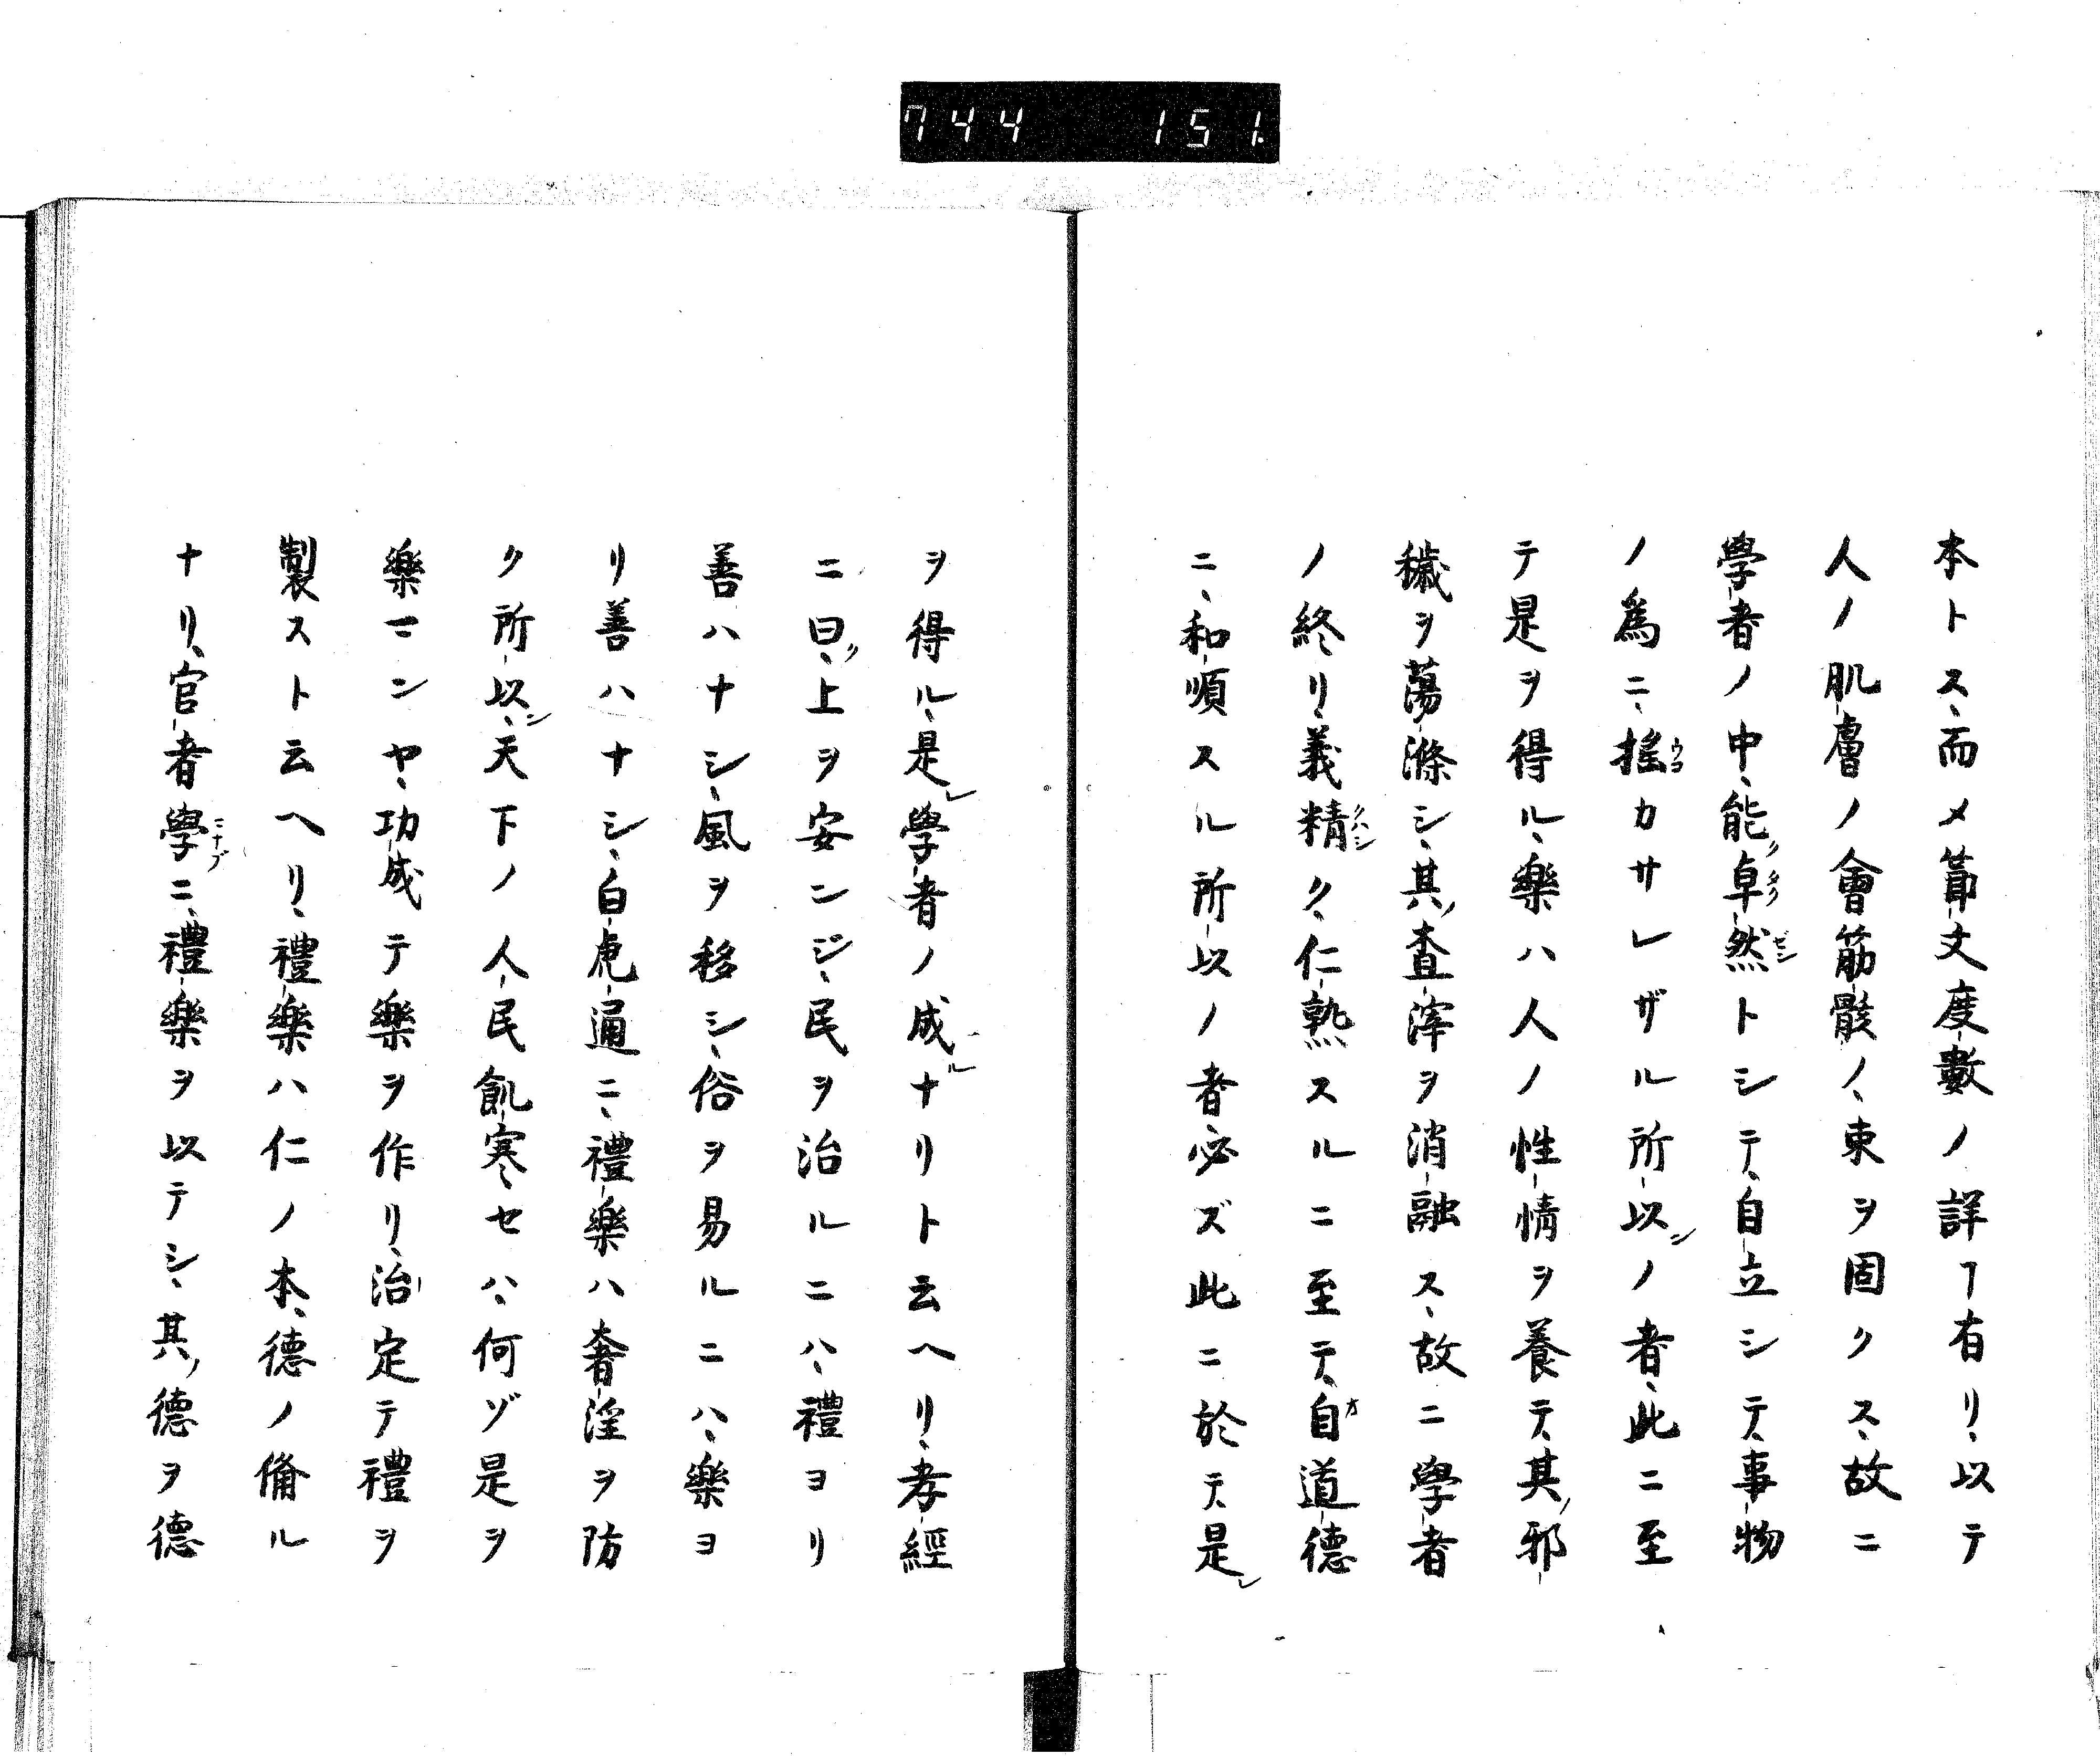 744 151
本トス、而メ節文度數ノ詳ヿ有リ、以テ
人ノ肌膚ノ會筋骸ノ、束ヲ固クス、故ニ
學者ノ中、能ノ卓然トシテ、自立シテ、事物
ノ爲ニ、搖カサレザル所以ノ者、此ニ至
テ是ヲ得ル、樂ハ人ノ性情ヲ養テ、其ノ邪
穢ヲ蕩滌シ、其ノ査滓ヲ消融ス、故ニ學者
ノ終リ、義精ク、仁熟スルニ至テ、自道德
ニ、和順スル所以ノ者必ズ此ニ於テ、是レ
ヲ得ル、是レ學者ノ成ルナリト云ヘリ、孝經
ニ曰ク、上ヲ安ンジ、民ヲ治ルニハ、禮ヨリ
善ハナシ、風ヲ移シ、俗ヲ易ルニハ、樂ヨ
リ善ハナシ、白虎通ニ、禮樂ハ奢淫ヲ防
ク所以、天下ノ人民飢寒セハ、何ゾ是ヲ
樂マンヤ、功成テ樂ヲ作リ、治定テ禮ヲ
製スト云ヘリ、禮樂ハ仁ノ本、德ノ備ル
ナリ、官者學ニ、禮樂ヲ以テシ、其ノ德ヲ德